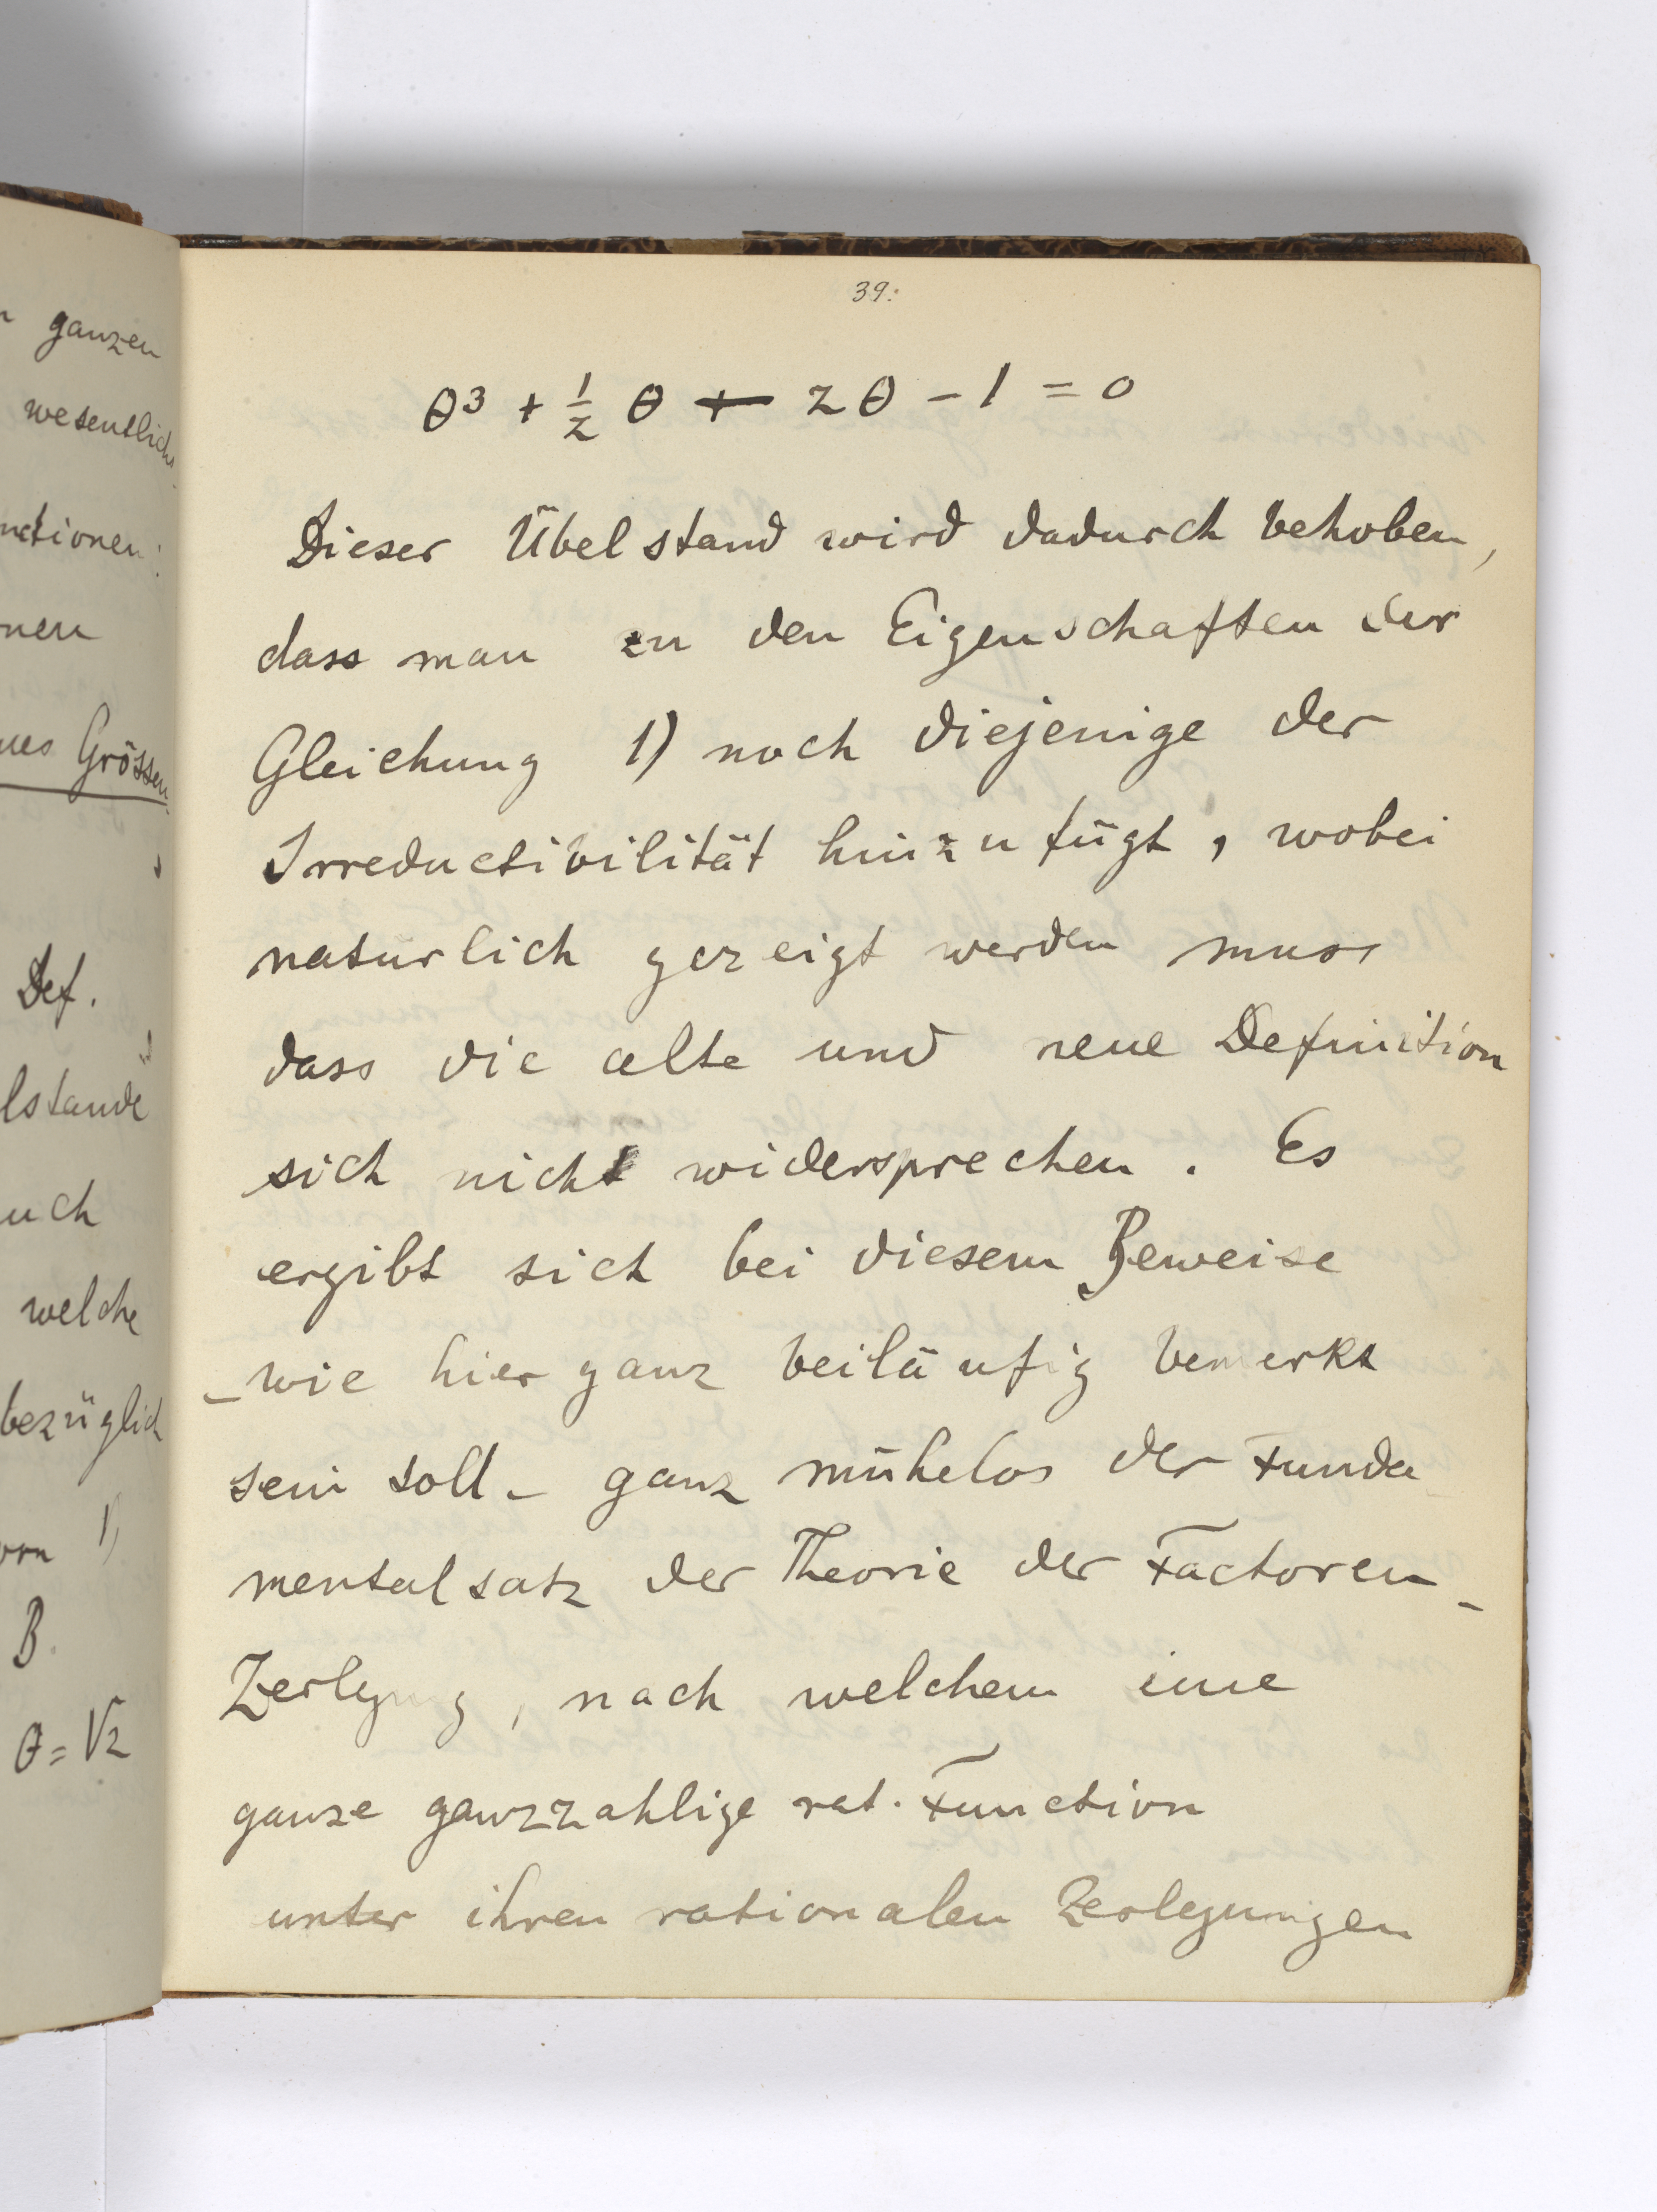 ganzen
wesentlich
nctionen
nen
nes Grössen
Def.
lstande
uch
welche
bezüglich
von 1)
B.
θ = √2
39.
θ³ + 1/2 θ + 2θ - 1 = 0
Dieser Übelstand wird dadurch behoben,
dass man zu den Eigenschaften der
Gleichung 1) noch diejenige der
Irreductibilität hinzufügt, wobei
naturlich gezeigt werden muss
dass die alte und neue Definition
sich nicht widersprechen. Es
ergibt sich bei diesem Beweise
– wie hier ganz beiläufig bemerkt
sein soll – ganz mühelos der Funda-
mentalsatz der Theorie der Factoren-
Zerlegung, nach welchem eine
ganze ganzzahlige rat. Function
unter ihren rationalen Zerlegungen